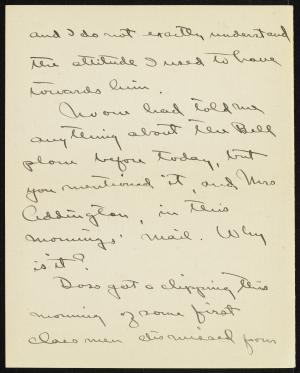 and I do not exactly understand
the attitude I used to have
towards him.
No one had told me
anything about the Bell
plane before today, but
you mentioned it, and Mrs
Eddington, in this
mornings' mail. Why
is it?
Doss got a clipping this
morning of some first
class men dismissed from